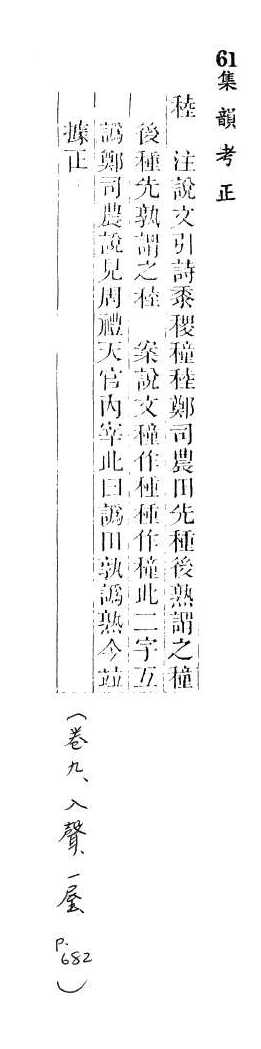 61 集韻考正
稑　注說文引詩黍稷穜稑鄭司農田先種後熟謂之穜
後種先孰謂之稑　案說文穜作種種作穜此二字互
譌鄭司農說見周禮天官內宰此曰譌田孰譌熟今竝
據正
(卷九、入聲、一屋 p.682)